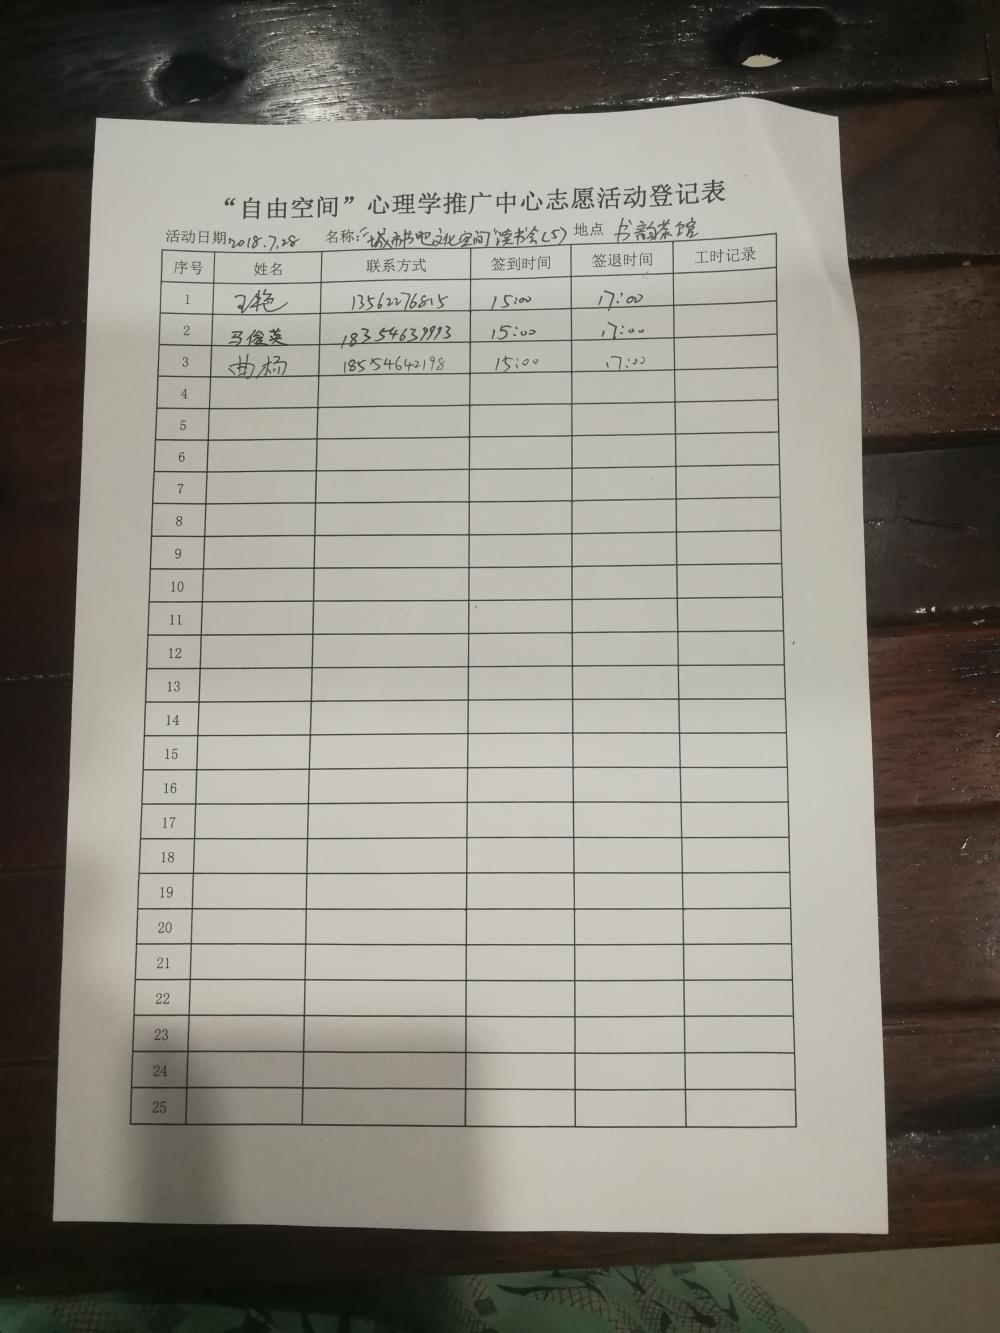 “自由空间”心理学推广中心志愿活动登记表
活动日期 2018.7.28 名称:“城市书吧文化空间”读书会(5) 地点 书韵茶馆
序号 姓名 联系方式 签到时间 签退时间 工时记录
1 王艳 13562276815 15:00 17:00
2 马俊英 18354639993 15:00 17:00
3 曲杨 18554642198 15:00 17:00
4
5
6
7
8
9
10
11
12
13
14
15
16
17
18
19
20
21
22
23
24
25